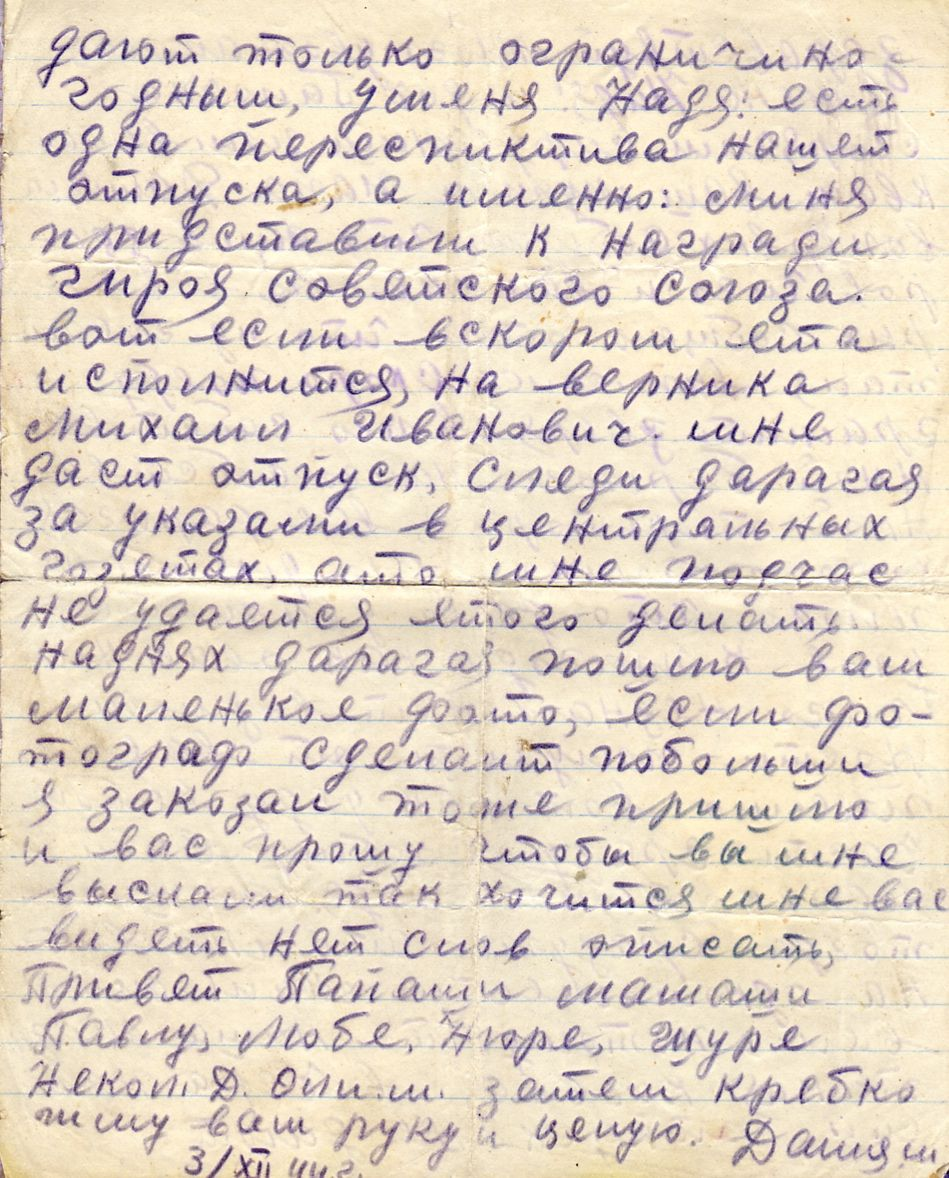 дают только ограничино
годным, уменя Надя: есть
одна переспиктива нащет
отпуска, а именно: миня
придставили к награди
гироя советского союза.
вот если вскором ета
исполнится, на верника
Михаил Иванович. мне
даст отпуск, Следи дарагая
за указами в центральных
газетах, ато мне подчас
не удается етого делать
наднях дарагая пошлю вам
маленькое фото, если фо-
тограф сделаит побольши
я заказал тоже пришлю
и вас прошу чтобы вы мне
выслали так хочится мне вас
видеть нет слов описать,
Привет Папаши мамаши
Павлу, Любе, Нюре, Шуре
Некол. Д. затем крепко
жму ваш руку и целую.
3/XII 44 г.